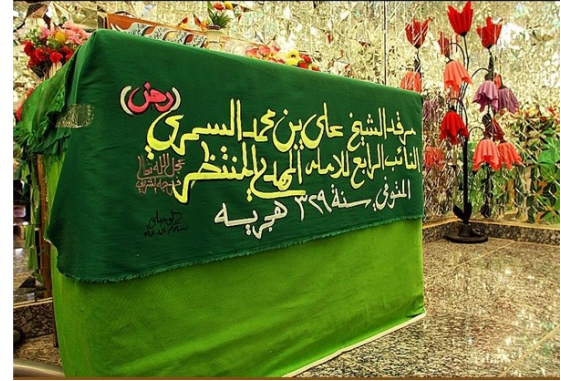 مرقد الشيخ علي بن محمد السمري (رض)
النائب الرابع للامام المهدي المنتظر
عجل الله تعالى فرجه الشريف
المتوفي سنة ٣٢٩ هجريه